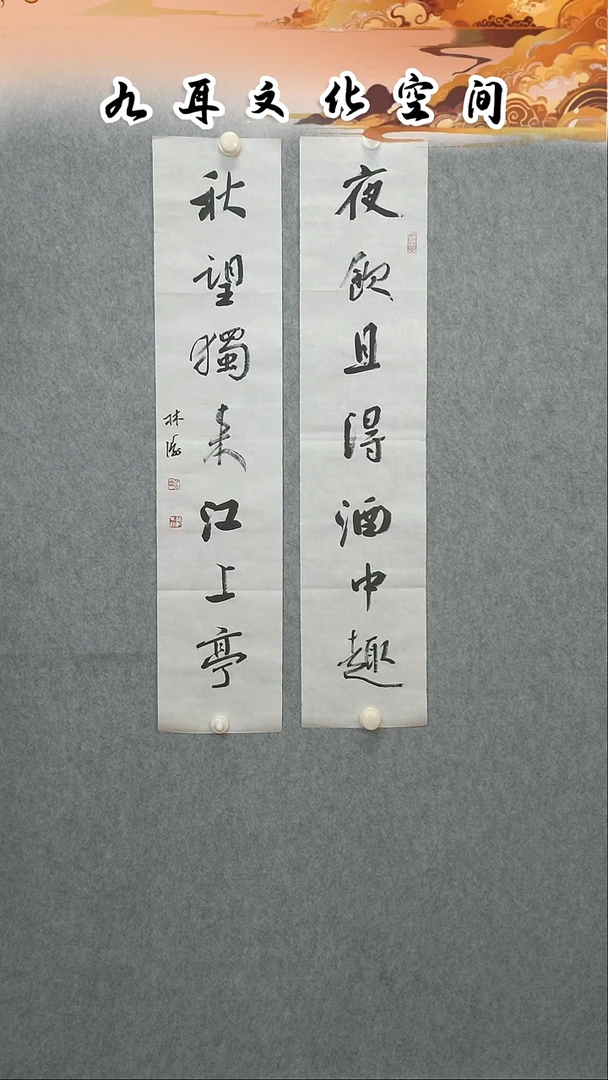 九耳文化空间
夜飲且得酒中趣
秋望獨来江上亭